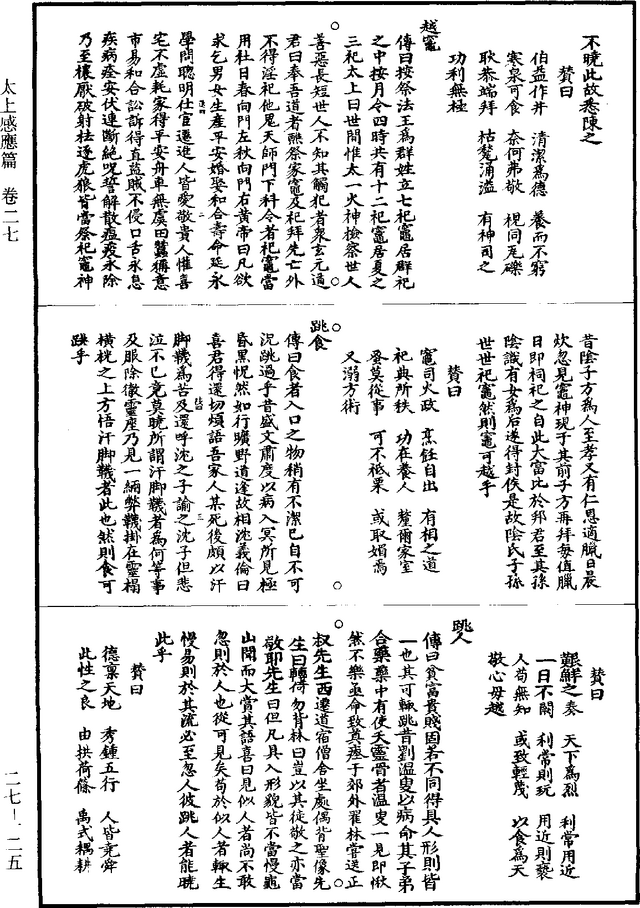 太上感應篇 卷二七
二七-二五
不曉此故悉陳之
贊曰
伯益作井 清潔爲德 養而不窮
寒泉可食 奈何弗敬 視同瓦礫
耿恭端拜 枯甃涌溢 有神司之
功利無極
越竈
傳曰按祭法王爲群姓立七祀竈居群祀
之中按月令四時共有十二祀竈居夏之
三祀太上曰世間惟太一火神檢察世人
善惡長短世人不知其觸犯者衆玄元道
君曰奉吾道者無祭家竈及祀拜先亡外
不得淫祀他鬼天師門下科令者祀竈當
用社日春向門左秋向門右黃帝曰凡欲
求乞男女生產平安婚娶和合壽命延永
學問聰明仕宦遷進人皆愛敬貴人懽喜
宅不虛耗家得平安舟車無虞田蠶稱意
市易和合訟訴得直盜賊不侵口舌永息
疾病痊安伏連斷絕呪誓解散瘟疫永除
乃至禳厭破射社逐虎狼皆當祭祀竈神
昔陰子方爲人至孝又有仁恩適臘日晨
炊忽見竈神現于其前子方再拜每值臘
日即祠祀之自此大富比於邦君至其孫
陰識有女爲后遂得封侯是故陰氏子孫
世世祀竈然則竈可越乎
贊曰
竈司火政 烹飪自出 有相之道
祀典所秩 功在養人 釐爾家室
蚤莫從事 可不祗栗 或取媚焉
又溺方術
跳食
傳曰食者入口之物稍有不潔已自不可
況跳過乎昔盛文肅度以病入冥所見極
昏黑怳然如行曠野道逢故相沈義倫曰
喜君得還切煩語吾家人某死後頗以汗
脚韈爲苦及還呼沈之子諭之沈子但悲
泣不已竟莫曉所謂汗脚韈者爲何等事
及服除徹靈座乃見一緉弊韈掛在靈榻
橫桄之上方悟汗脚韈者此也然則食可
跳乎
贊曰
艱鮮之奏 天下爲烈 利常用近
一日不闕 利常則玩 用近則褻
人苟無知 或致輕蔑 以食爲天
敬心毋越
跳人
傳曰貧富貴賤固若不同得具人形則皆
一也其可輒跳昔劉溫叟以病命其子弟
合藥藥中有使天靈骨者溫叟一見即愀
然不樂亟命致奠瘞于郊外翟林嘗送正
叔先生西遷道宿僧舍坐處偶背聖像先
生曰轉椅勿背林曰豈以其徒敬之亦當
敬耶先生曰但凡具人形貌皆不當慢龜
山聞而大賞其語喜曰見似人者尚不敢
忽則於人也從可見矣苟於似人者輒生
慢易則於其流必至忽人彼跳人者能曉
此乎
贊曰
德稟天地 秀鍾五行 人皆堯舜
此性之良 由拱荷篠 禹式耦耕